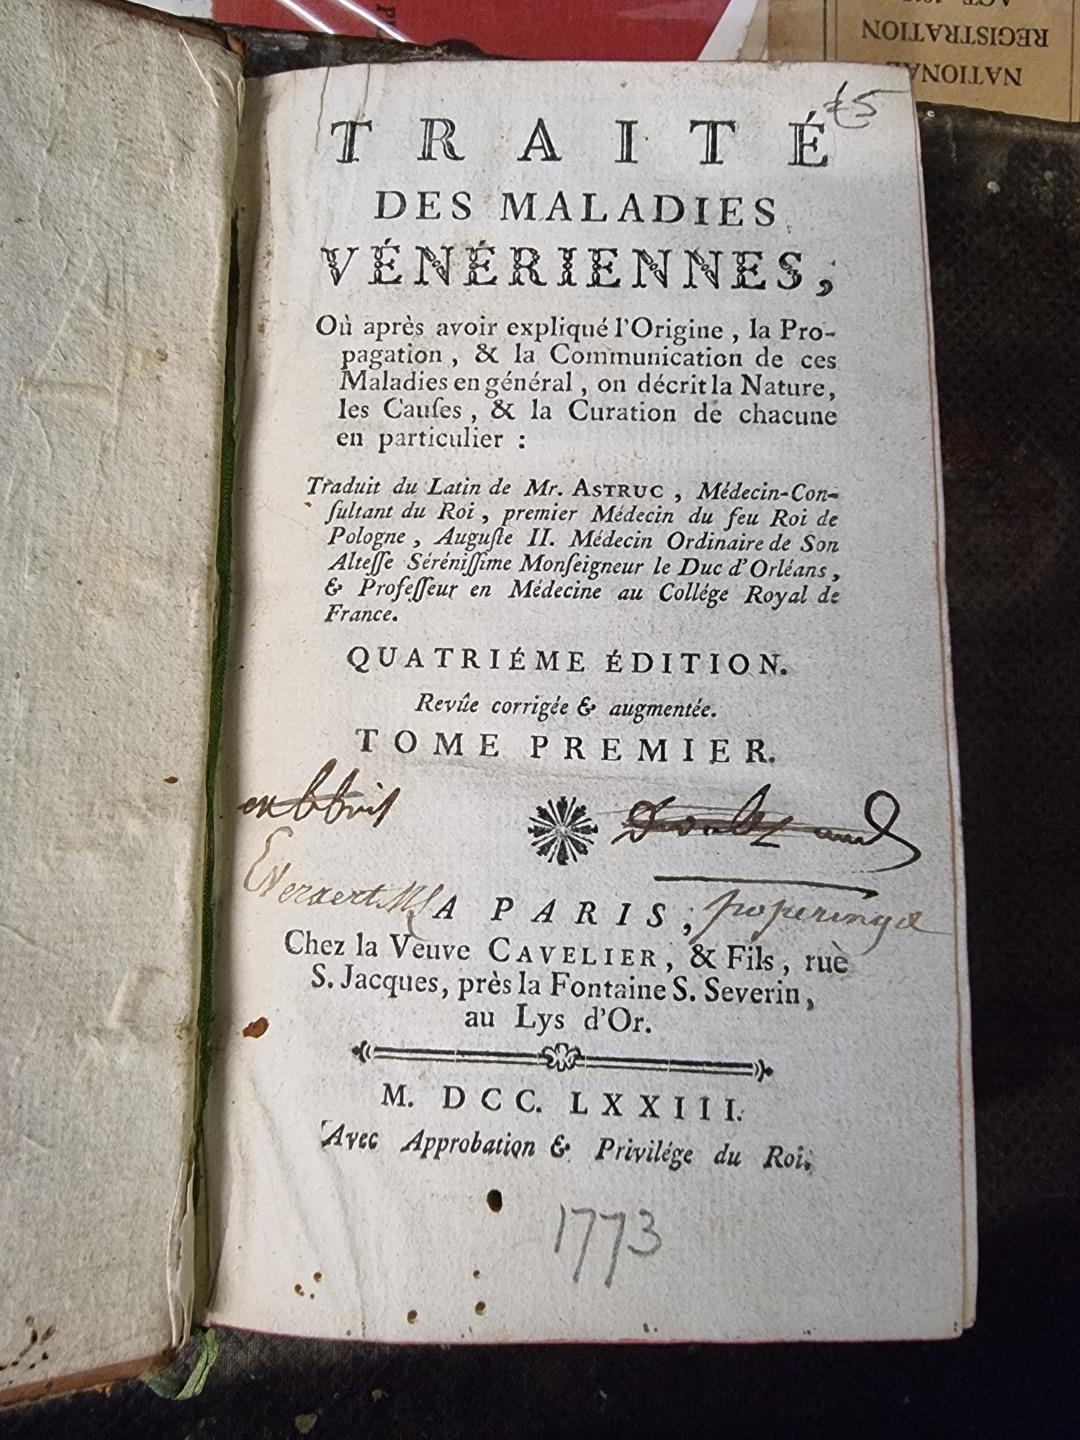 NATIONAL
REGISTRATION
£5
TRAITÉ
DES MALADIES
VÉNÉRIENNES,
Où après avoir expliqué l'Origine, la Pro-
pagation, & la Communication de ces
Maladies en général, on décrit la Nature,
les Cauſes, & la Curation de chacune
en particulier :
Traduit du Latin de Mr. ASTRUC, Médecin-Con-
ſultant du Roi, premier Médecin du feu Roi de
Pologne, Auguſte II. Médecin Ordinaire de Son
Alteſſe Séréniſſime Monſeigneur le Duc d'Orléans,
& Profeſſeur en Médecine au Collége Royal de
France.
QUATRIÉME ÉDITION.
Revûe corrigée & augmentée.
TOME PREMIER.
A PARIS,
Chez la Veuve CAVELIER, & Fils, ruë
S. Jacques, près la Fontaine S. Severin,
au Lys d'Or.
M. DCC. LXXIII.
Avec Approbation & Privilége du Roi.
1773